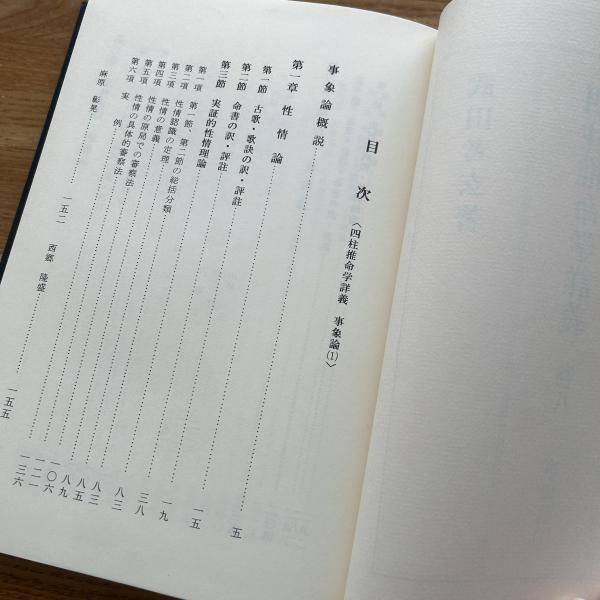 目次 〈四柱推命学詳義 事象論(1)〉
事象論概説……………………五
第一章 性情論……………………一五
第一節 古歌・歌訣の訳・評註……………………一九
第二節 命書の訳・評註……………………三八
第三節 実証的性情理論……………………八三
第一項 第一節、第二節の総括分類……………………八三
第二項 性情認識の定理……………………八五
第三項 性情の意義……………………八九
第四項 性情の原局での審察法……………………一〇六
第五項 性情の具体的審察法……………………一二一
第六項 実例……………………一三六
麻原 彰晃……………………一五二 西郷 隆盛……………………一五五